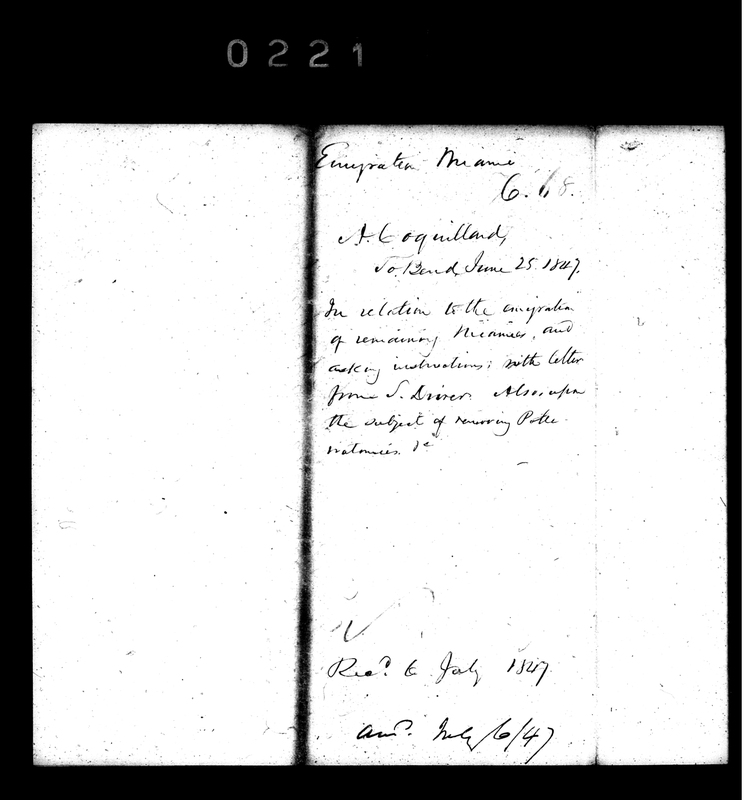 0221
Emigration Miami
C.
A. Coquillard,
So. Bend, June 25. 1847.
In relation to the emigration
of remaining Miamies, and
asking instructions; with letter
from S. Driver. Also, upon
the subject of removing Potte
watomies. &c
Recd. 6 July 1847
Ansd. July 6/47